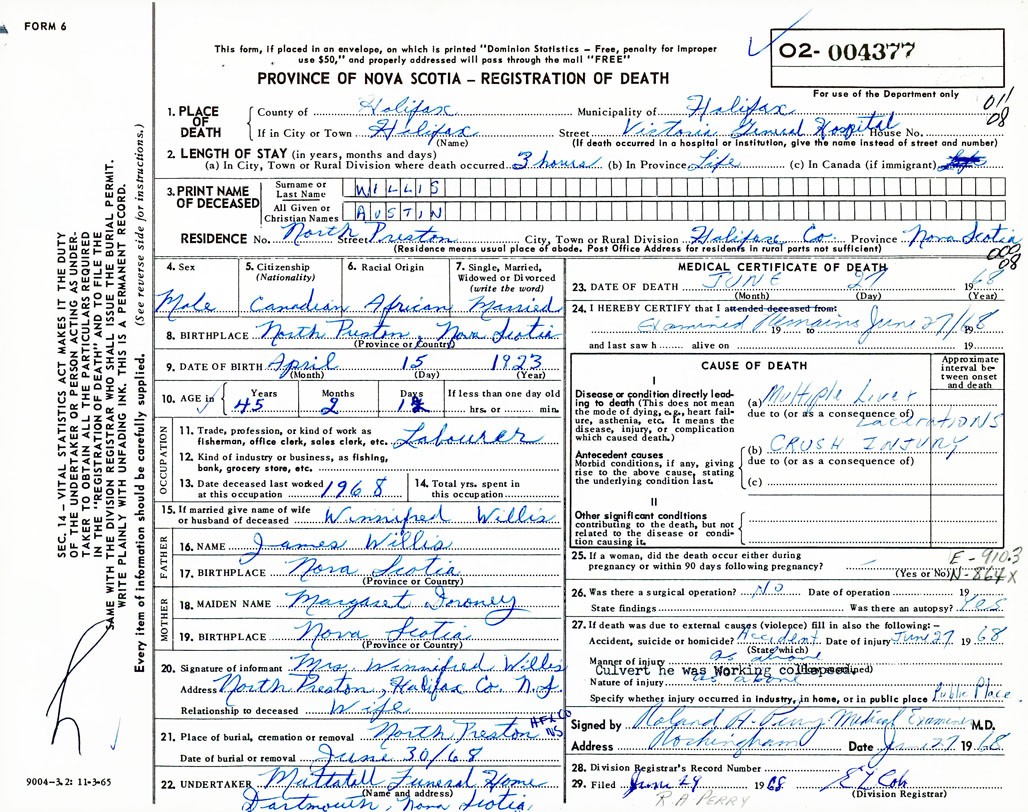 FORM 6
This form, if placed in an envelope, on which is printed "Dominion Statistics – Free, penalty for improper
use $50," and properly addressed will pass through the mail "FREE"
PROVINCE OF NOVA SCOTIA – REGISTRATION OF DEATH
O2- 004377
For use of the Department only
011
08
1. PLACE OF DEATH
County of Halifax Municipality of Halifax
If in City or Town Halifax Street Victoria General Hospital House No.
(Name) (If death occurred in a hospital or institution, give the name instead of street and number)
2. LENGTH OF STAY (in years, months and days)
(a) In City, Town or Rural Division where death occurred 3 hours (b) In Province Life (c) In Canada (if immigrant)
3. PRINT NAME OF DECEASED
Surname or Last Name WILLIS
All Given or Christian Names AUSTIN
RESIDENCE No. North Street Preston City, Town or Rural Division Halifax Co. Province Nova Scotia
(Residence means usual place of abode. Post Office Address for residents in rural parts not sufficient)
000
08
4. Sex
Male
5. Citizenship (Nationality)
Canadian
6. Racial Origin
African
7. Single, Married, Widowed or Divorced (write the word)
Married
8. BIRTHPLACE North Preston, Nova Scotia
(Province or Country)
9. DATE OF BIRTH April 15 1923
(Month) (Day) (Year)
10. AGE in Years Months Days If less than one day old
45 2 12 hrs. or min.
OCCUPATION
11. Trade, profession, or kind of work as
fisherman, office clerk, sales clerk, etc. Labourer
12. Kind of industry or business, as fishing,
bank, grocery store, etc.
13. Date deceased last worked at this occupation 1968
14. Total yrs. spent in this occupation
15. If married give name of wife
or husband of deceased Winnifred Willis
FATHER
16. NAME James Willis
17. BIRTHPLACE Nova Scotia
(Province or Country)
MOTHER
18. MAIDEN NAME Margaret
19. BIRTHPLACE Nova Scotia
(Province or Country)
20. Signature of informant Mrs. Winnifred Willis
Address North Preston, Halifax Co. N.S.
Relationship to deceased Wife
21. Place of burial, cremation or removal North Preston HFX CO NS
Date of burial or removal June 30/68
22. UNDERTAKER Mattatall Funeral Home
(Name and address)
Dartmouth, Nova Scotia
MEDICAL CERTIFICATE OF DEATH
23. DATE OF DEATH JUNE 27 1968
(Month) (Day) (Year)
24. I HEREBY CERTIFY that I attended deceased from:
Examined Remains June 27/68
19 19
and last saw h alive on 19
CAUSE OF DEATH
Approximate interval between onset and death
I
Disease or condition directly leading to death (This does not mean the mode of dying, e.g., heart failure, asthenia, etc. It means the disease, injury, or complication which caused death.)
(a) Multiple Liver Lacerations
due to (or as a consequence of)
Antecedent causes
Morbid conditions, if any, giving rise to the above cause, stating the underlying condition last.
(b) CRUSH INJURY
due to (or as a consequence of)
(c)
II
Other significant conditions
contributing to the death, but not related to the disease or condition causing it.
25. If a woman, did the death occur either during
pregnancy or within 90 days following pregnancy?
(Yes or No)
E-910.3
N-864X
26. Was there a surgical operation? NO Date of operation 19
State findings Was there an autopsy? Yes
27. If death was due to external causes (violence) fill in also the following:–
Accident, suicide or homicide? Accident Date of injury June 27 1968
(State which)
Manner of injury as above
Culvert he was Working collapsed.
Nature of injury as above
Specify whether injury occurred in industry, in home, or in public place Public Place
Signed by Roland A. Perry Medical Examiner M.D.
Address Rockingham Date June 27 1968
28. Division Registrar's Record Number
29. Filed June 29 1968
(Division Registrar)
R A PERRY
SEC. 14 – VITAL STATISTICS ACT MAKES IT THE DUTY
OF THE UNDERTAKER OR PERSON ACTING AS UNDERTAKER
TO OBTAIN ALL THE PARTICULARS REQUIRED
IN THE "REGISTRATION OF DEATH" AND TO FILE THE
SAME WITH THE DIVISION REGISTRAR WHO SHALL ISSUE THE BURIAL PERMIT.
WRITE PLAINLY WITH UNFADING INK. THIS IS A PERMANENT RECORD.
Every item of information should be carefully supplied. (See reverse side for instructions.)
9004-3.2: 11-3-65